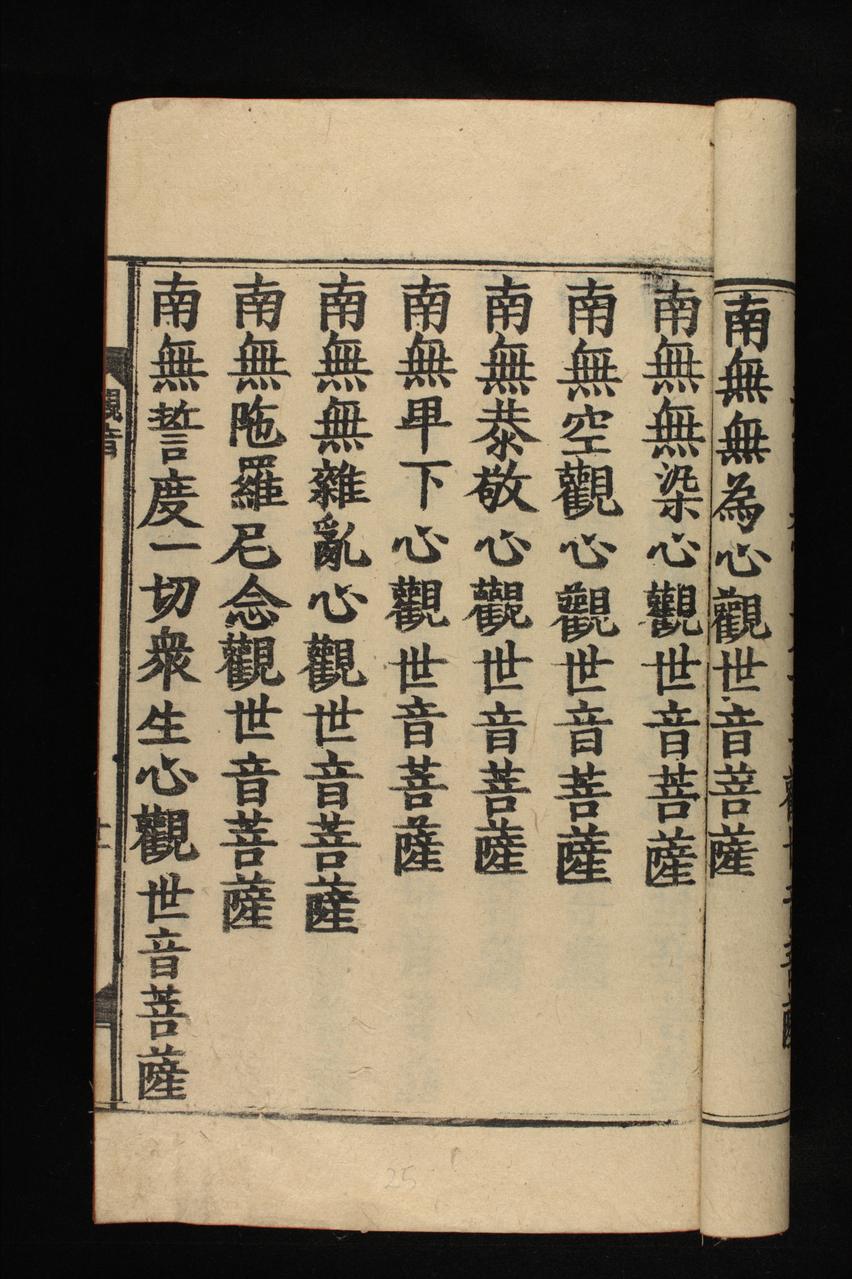 南無無為心觀世音菩薩
南無無染心觀世音菩薩
南無空觀心觀世音菩薩
南無恭敬心觀世音菩薩
南無卑下心觀世音菩薩
南無無雜亂心觀世音菩薩
南無陁羅尼念觀世音菩薩
南無誓度一切衆生心觀世音菩薩
觀音
25